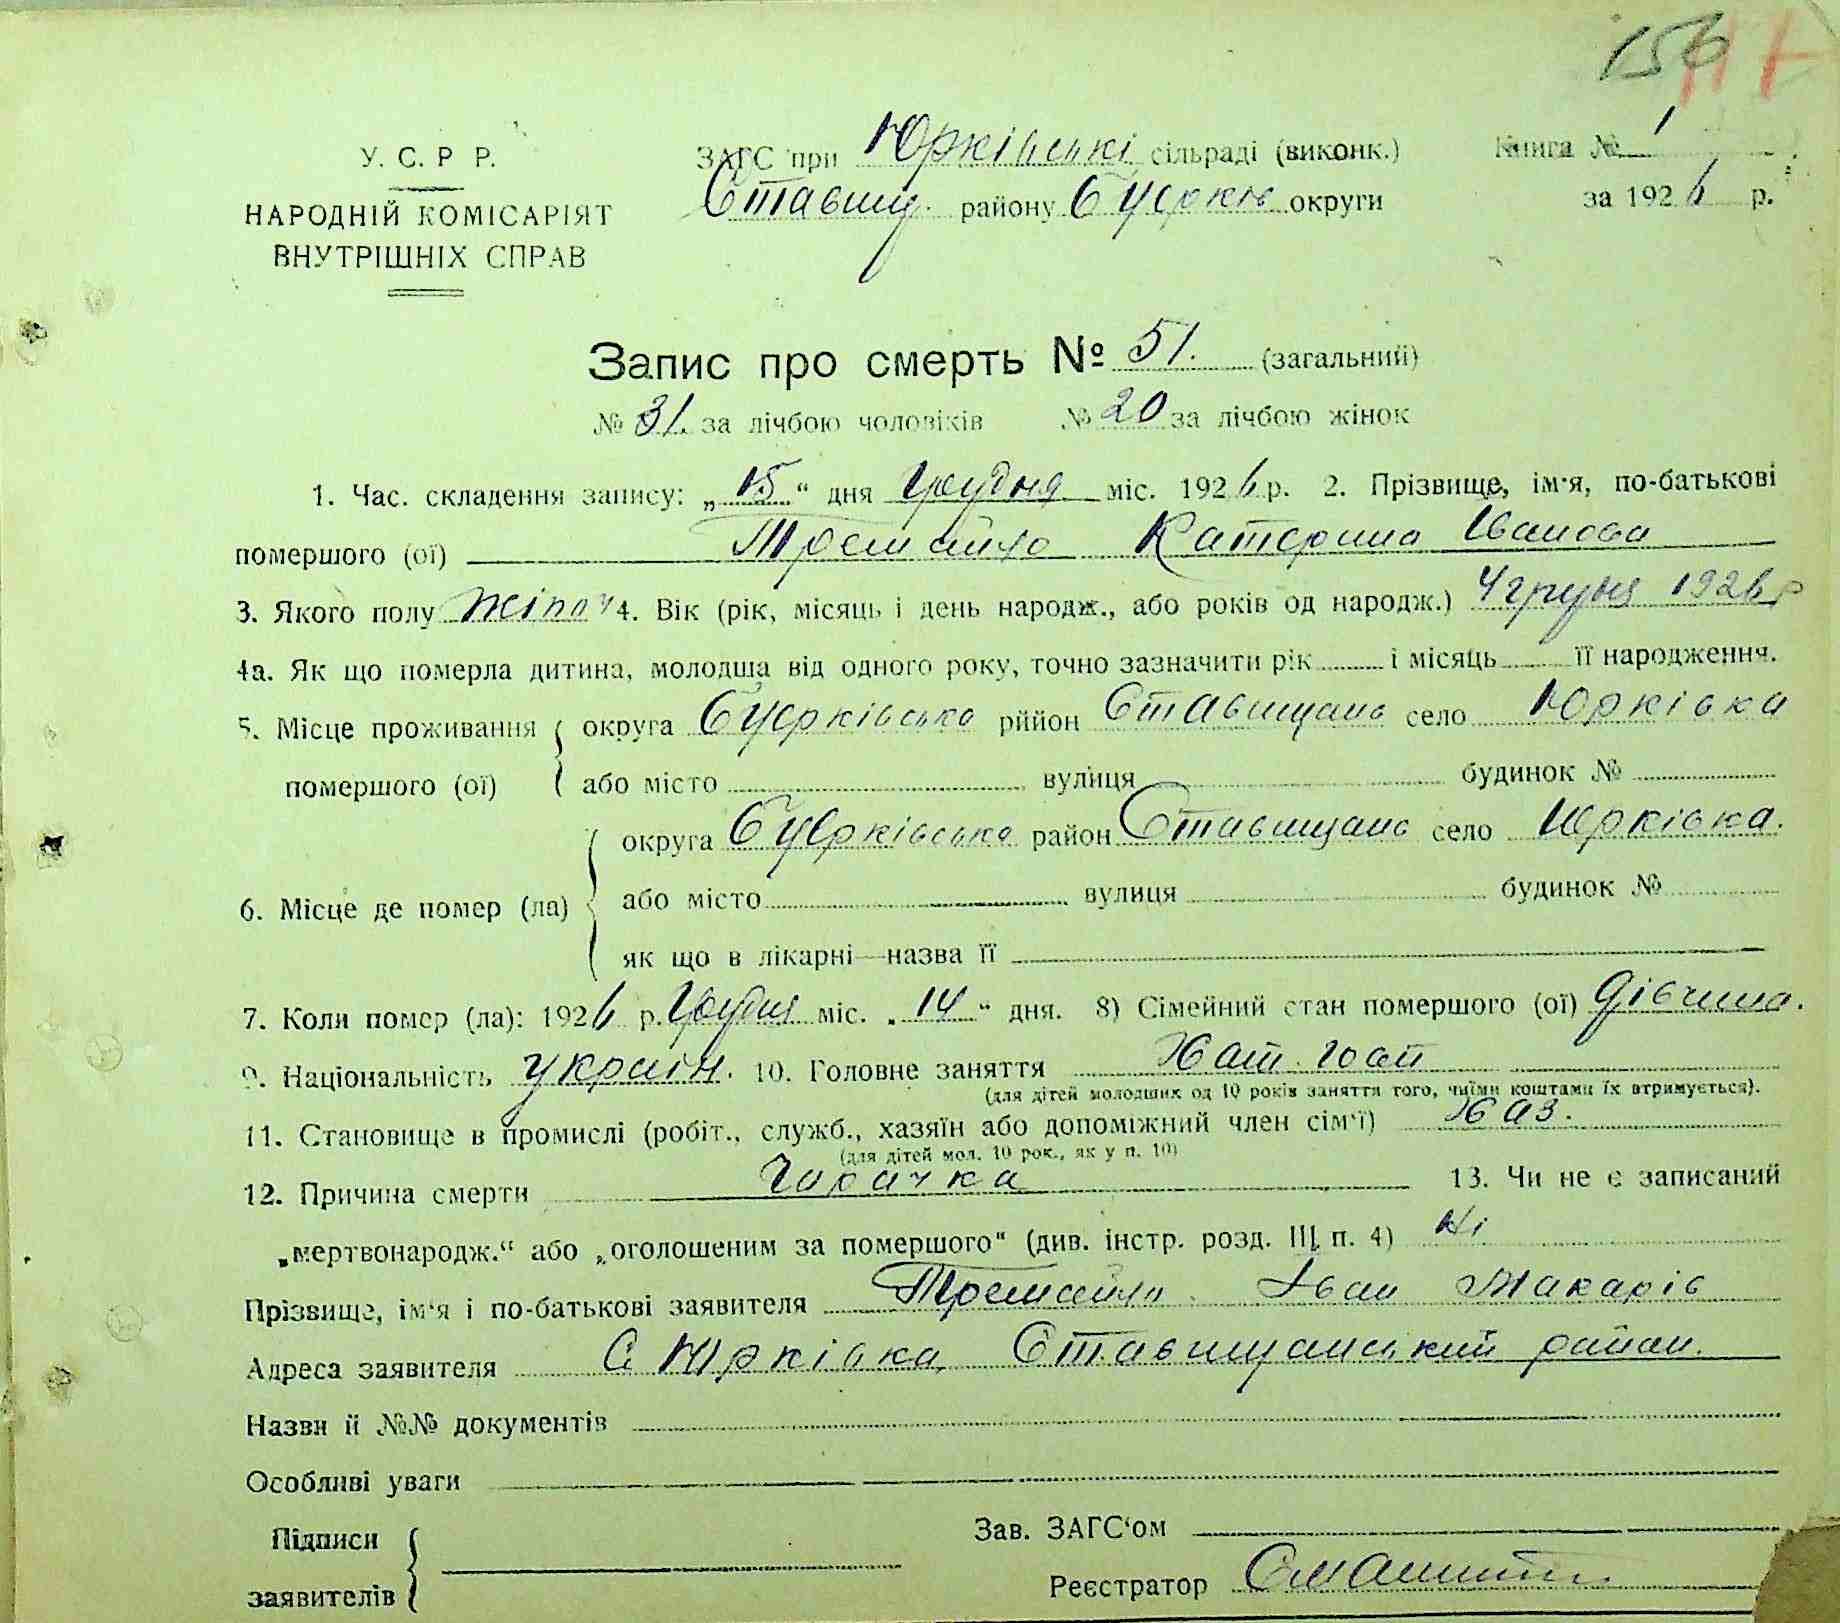 156
У. С. Р Р.
НАРОДНІЙ КОМІСАРІЯТ
ВНУТРІШНІХ СПРАВ
ЗАГС при Юрківські сільраді (виконк.)
Ставищ. району округи
Книга № 1
за 1926 р.
Запис про смерть № 51. (загальний)
№ 31. за лічбою чоловіків № 20 за лічбою жінок
1. Час. складення запису: „15“ дня Грудня міс. 1926 р. 2. Прізвище, ім'я, по-батькові
помершого (ої) Катерина Іванова
3. Якого полу жіноч 4. Вік (рік, місяць і день народж., або років од народж.) 4 грудня 1926 р
4а. Як що померла дитина, молодша від одного року, точно зазначити рік і місяць її народження.
5. Місце проживання округа рййон Ставищань село Юрківка
помершого (ої) або місто вулиця будинок №
округа район Ставищань село Юрківка.
6. Місце де помер (ла) або місто вулиця будинок №
як що в лікарні—назва її
7. Коли помер (ла): 1926 р. Грудня міс. „14“ дня. 8) Сімейний стан помершого (ої) дівчина.
9. Національність україн. 10. Головне заняття
(для дітей молодших од 10 років заняття того, чиїми коштами їх втримується).
11. Становище в промислі (робіт., служб., хазяїн або допоміжний член сім'ї) Хаз.
(для дітей мол. 10 рок., як у п. 10)
12. Причина смерти Гарачка 13. Чи не є записаний
„мертвонародж.“ або „оголошеним за помершого“ (див. інстр. розд. III п. 4) Ні
Прізвище, ім'я і по-батькові заявителя Іван Макарів
Адреса заявителя С. Юрківка, Ставищанський район.
Назви й №№ документів
Особливі уваги
Підписи
заявителів
Зав. ЗАГС'ом
Реєстратор